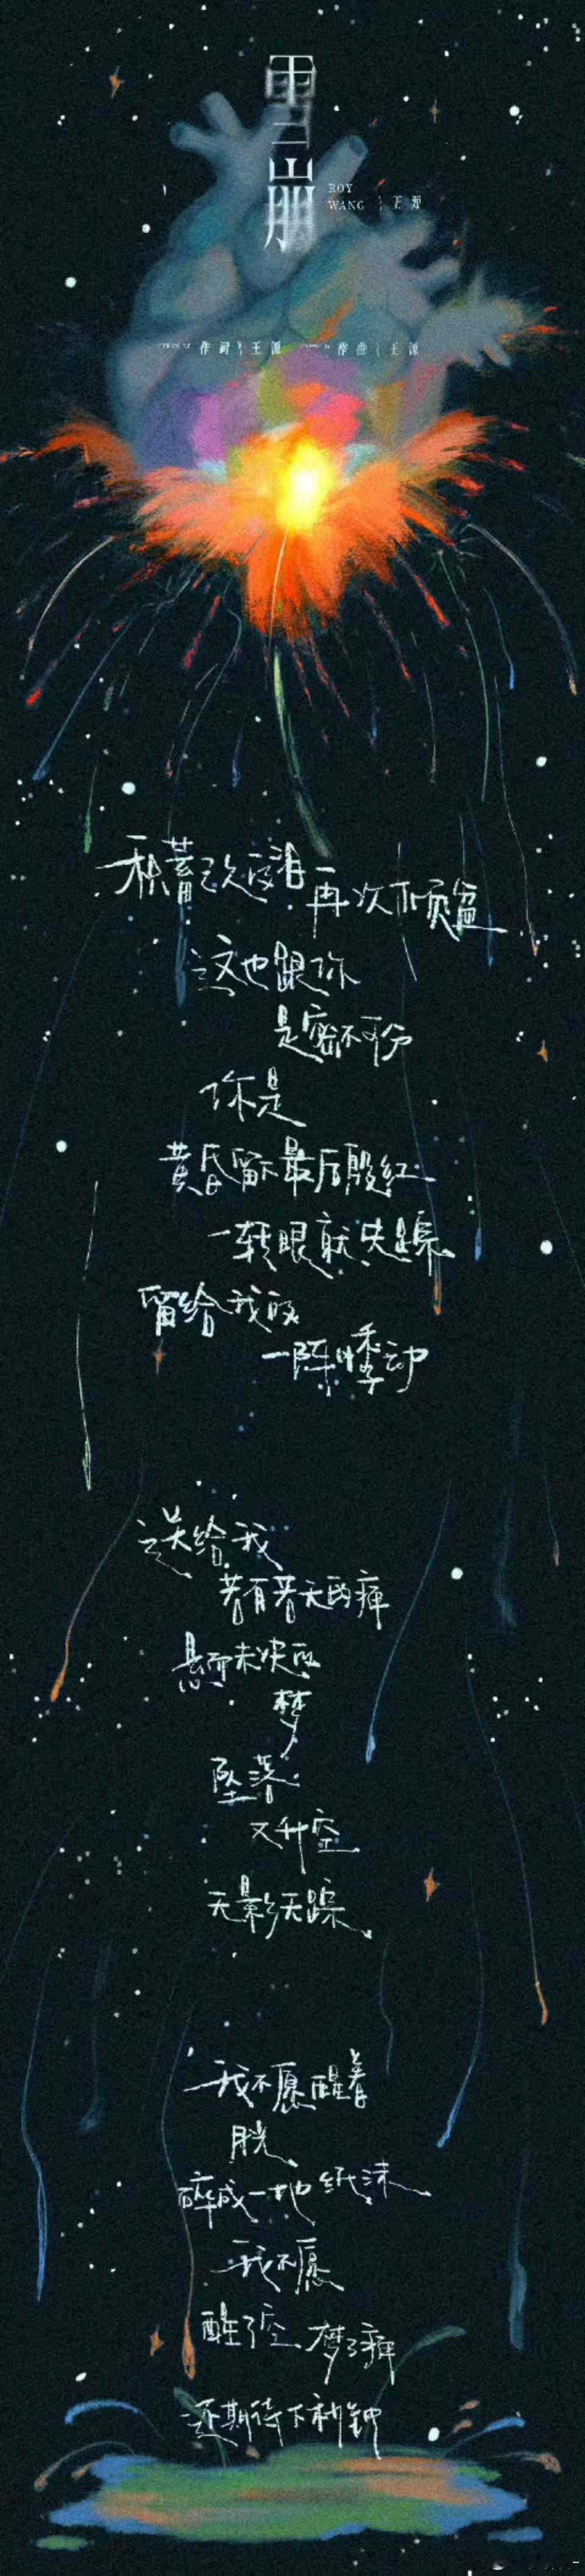 雪崩
ROY
WANG 王源
作词 王源 作曲 王源
积蓄已久的泪 再次倾盆
这也跟你
是密不可分
你是
黄昏留下最后殷红
一转眼就失踪
留给我的
一阵悸动
送给我
若有若无的痛
悬而未决的
梦
坠落
又升空
无影无踪
我不愿醒着
胱
碎成一地 纸沫
我不愿
醒了空 梦了痛
还期待下秒钟